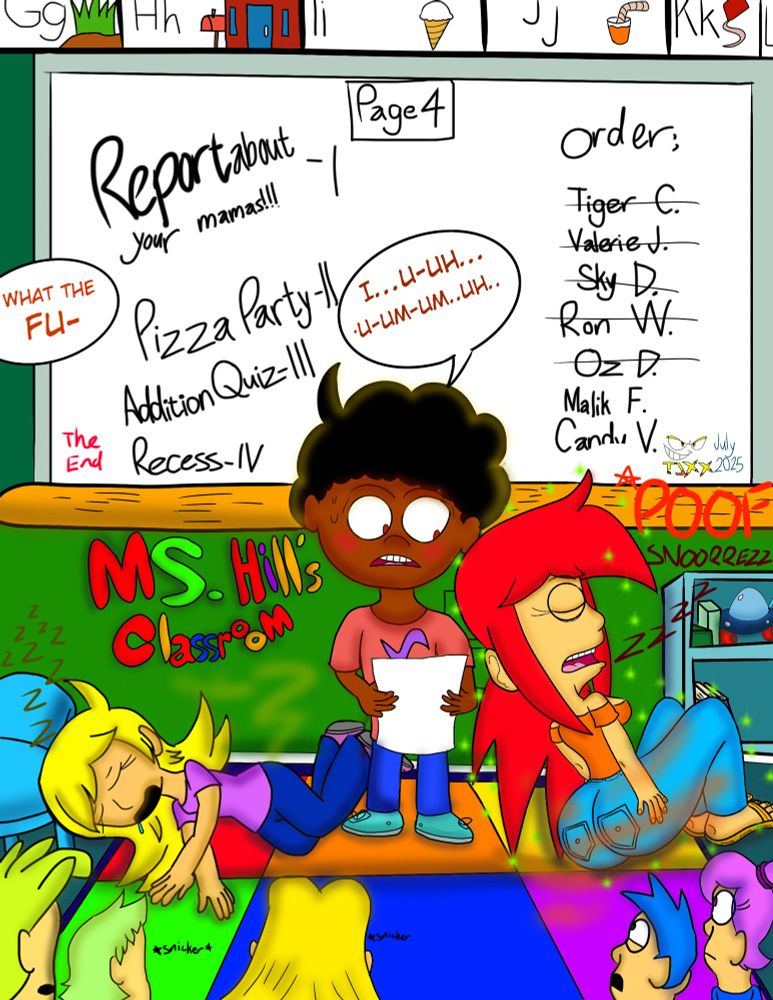 Gg
Hh
Ii
Jj
Kk
Page 4
Report about - I
your mamas!!!
Pizza Party-II
Addition Quiz-III
Recess-IV
The
End
Order:
Tiger C.
Valerie J.
Sky D.
Ron W.
Oz D.
Malik F.
Candy V.
TJXX
July
2025
WHAT THE
FU-
I...U-UH...
U-UM-UM..UH..
*POOF
SNOORREZZ
MS. Hill's
Classroom
z z
z z z z
z
z
z
z z z z
*snicker*
*snicker